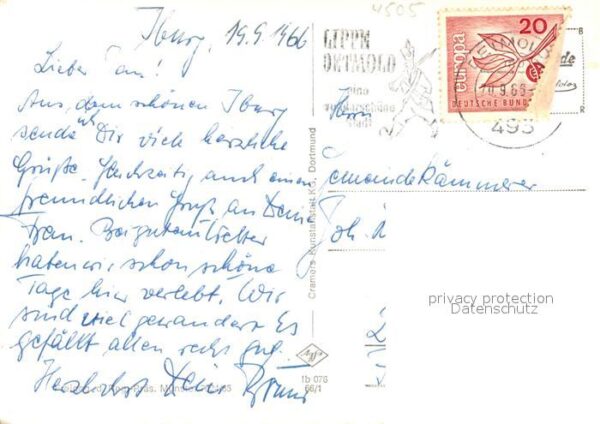 4505
Iburg, 19.9.1966
Lieber
Aus dem schönen Iburg
sende ich Dir viele herzliche
Grüße. Gleichzeitig auch einen
freundlichen Gruß an Deine
Frau. Bei gutem Wetter
haben wir schon schöne
Tage hier verlebt. Wir
sind viel gewandert. Es
gefällt allen recht gut.
Herzlichst Dein
Cramers Kunstanstalt KG, Dortmund
Ib 076
66/1
LIPPE
DETMOLD
eine
wunderschöne
Stadt
europa
20
DEUTSCHE BUNDES
DETMOLD
0.9.66
493
Herrn
Gemeindekämmerer
Joh.
privacy protection
Datenschutz